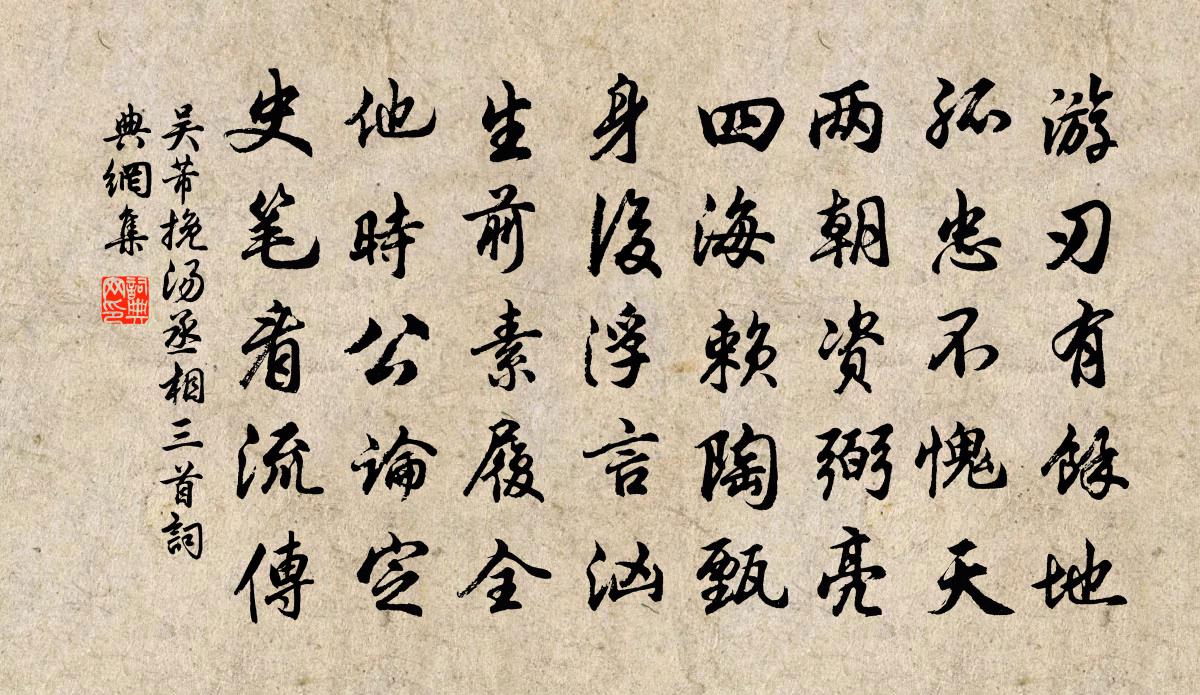 游刃有餘地
孤忠不愧天
两朝资弼亮
四海赖陶甄
身後浮言汹
生前素履全
他時公論定
史笔看流傳
吴芾挽汤丞相三首詞
典網集
詞典
网印